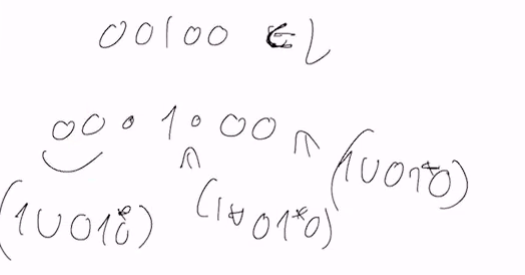 00100 ∈ L
00 ∘ 1 ∘ 00
(1∪01*0) (1∪01*0) (1∪01*0)